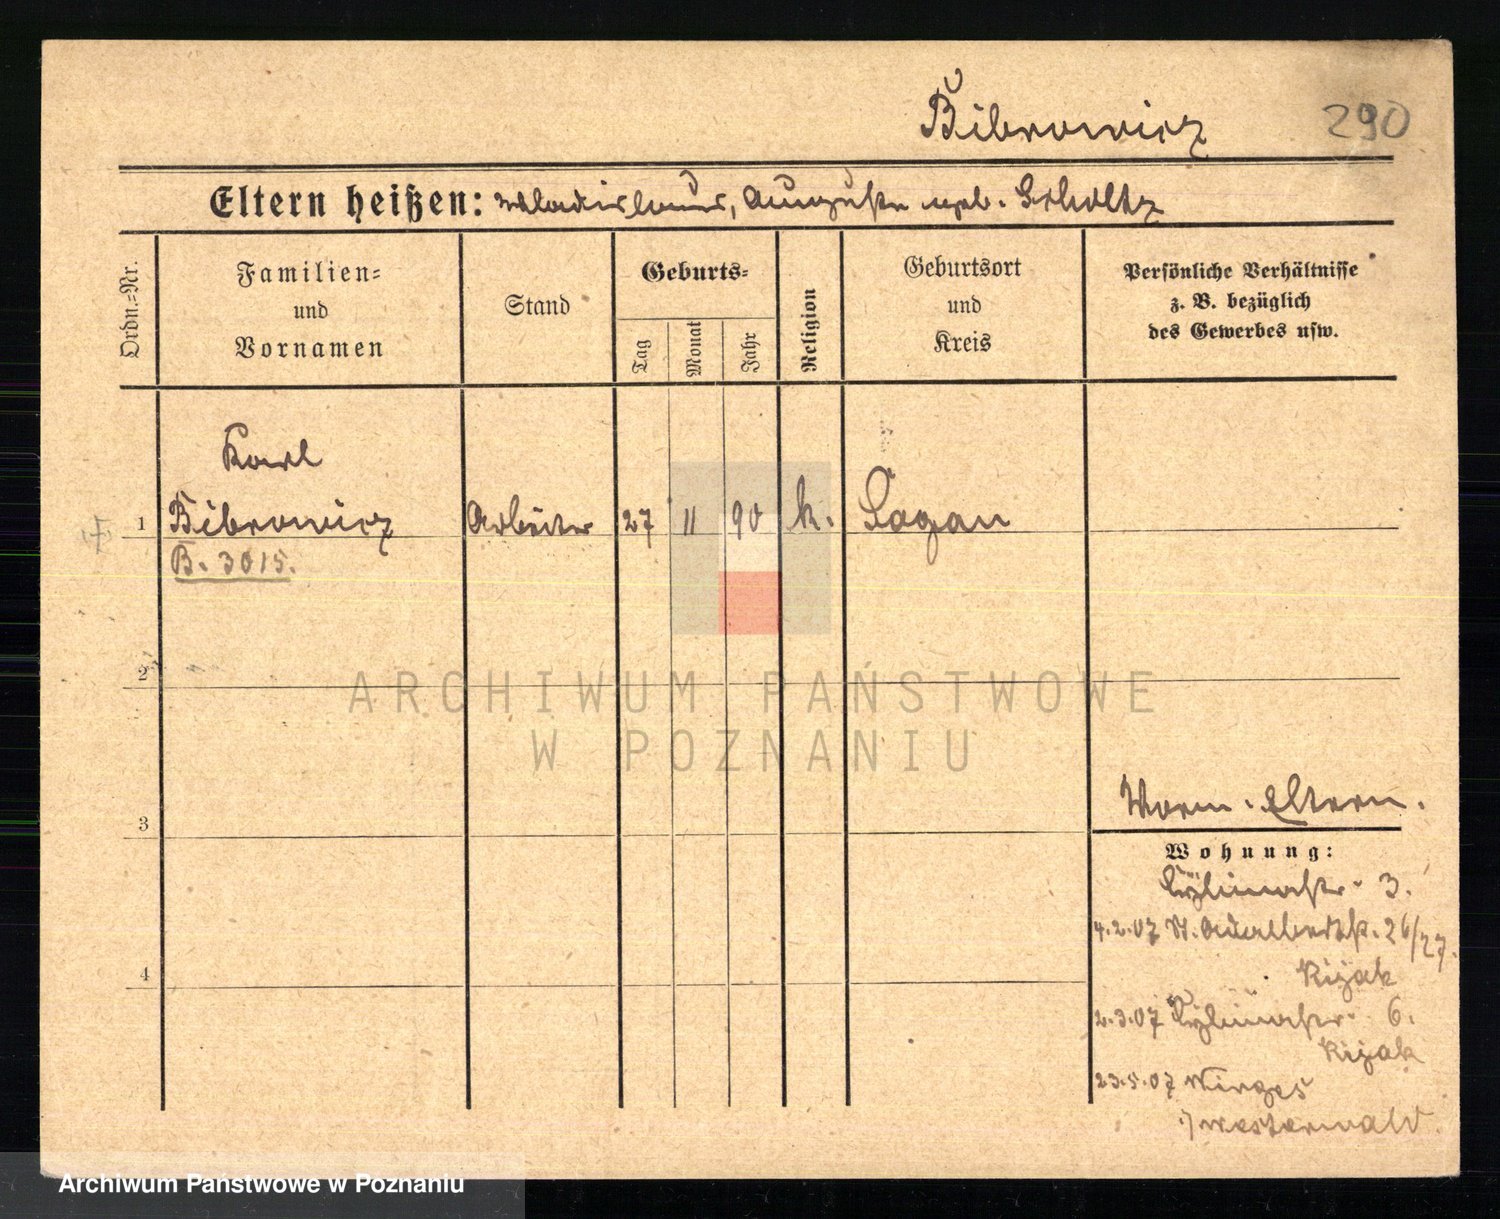 Bibrowicz 290
Eltern heißen: Wladislaus, Auguste geb. Scholtz
Ordn.-Nr.
Familien-
und
Vornamen
Stand
Geburts-
Tag
Monat
Jahr
Religion
Geburtsort
und
Kreis
Persönliche Verhältnisse
z. B. bezüglich
des Gewerbes usw.
Karl
1 Bibrowicz Arbeiter 27 11 90 k. Sagan
B. 3015.
2
ARCHIWUM PAŃSTWOWE
W POZNANIU
3
4
Eltern.
Wohnung:
3.
4.2.07 St. Adalbertstr. 26/27.
Kijak
2.3.07 6.
Kijak
23.5.07 Wirges
Westerwald
Archiwum Państwowe w Poznaniu